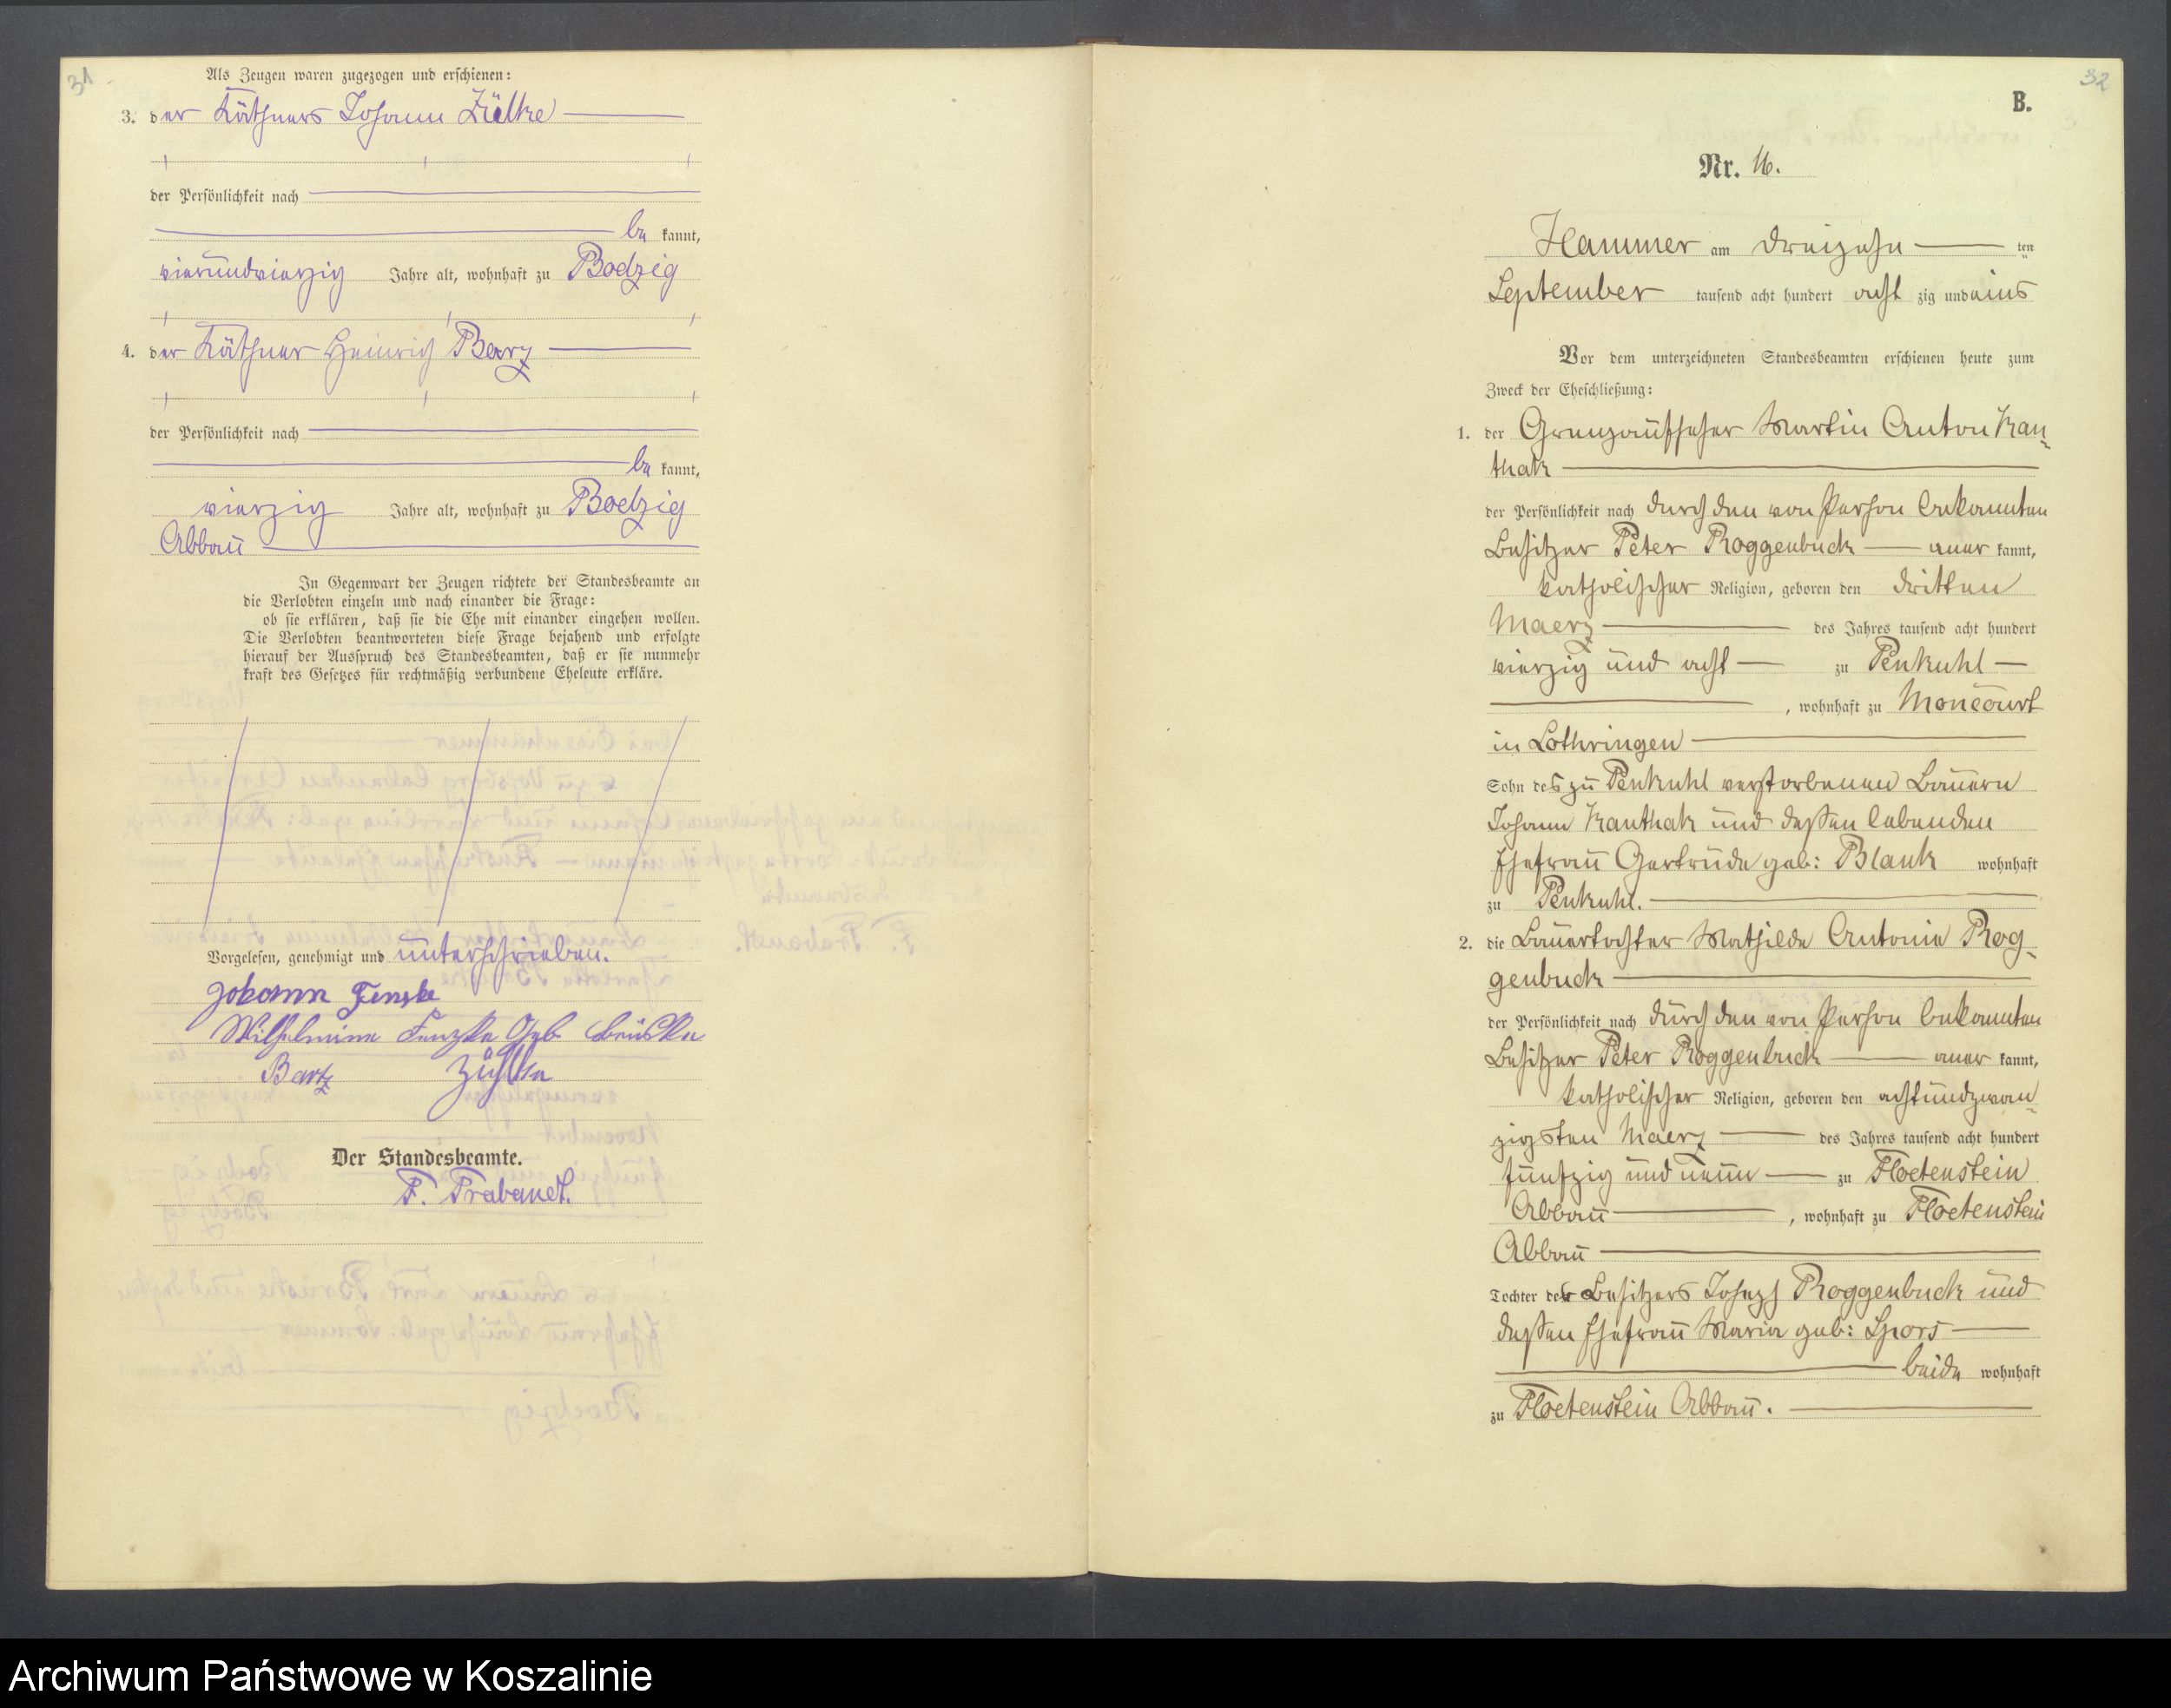 31
Als Zeugen waren zugezogen und erschienen:
3. der Käthners Johann Zülke
der Persönlichkeit nach
be kannt,
vierundvierzig Jahre alt, wohnhaft zu Boelzig
4. der Käthner Heinrich Barz
der Persönlichkeit nach
be kannt,
vierzig Jahre alt, wohnhaft zu Boelzig
Abbau
In Gegenwart der Zeugen richtete der Standesbeamte an
die Verlobten einzeln und nach einander die Frage:
ob sie erklären, daß sie die Ehe mit einander eingehen wollen.
Die Verlobten beantworteten diese Frage bejahend und erfolgte
hierauf der Ausspruch des Standesbeamten, daß er sie nunmehr
kraft des Gesetzes für rechtmäßig verbundene Eheleute erkläre.
Vorgelesen, genehmigt und unterschrieben.
Johann Fenske
Wilhelmine Fenzke Geb Brüske
Bartz Zühlke
Der Standesbeamte.
F. Prabandt.
32
B.
Nr. 16.
Hammer am dreizehn ten
September tausend acht hundert acht zig und eins
Vor dem unterzeichneten Standesbeamten erschienen heute zum
Zweck der Eheschließung:
1. der Grenzaufseher Martin Anton Kan
thak
der Persönlichkeit nach durch den von Person bekannten
Besitzer Peter Roggenbuck aner kannt,
katholischer Religion, geboren den dritten
Maerz des Jahres tausend acht hundert
vierzig und acht zu Penkuhl
, wohnhaft zu Moncourt
in Lothringen
Sohn des zu Penkuhl verstorbenen Bauern
Johann Kanthak und deßen lebenden
Ehefrau Gertrude geb: Blank wohnhaft
zu Penkuhl.
2. die Bauertochter Mathilde Antonie Rog
genbuck
der Persönlichkeit nach durch den von Person bekannten
Besitzer Peter Roggenbuck aner kannt,
katholischer Religion, geboren den achtundzwan
zigsten Maerz des Jahres tausend acht hundert
fünfzig und neun zu Floetenstein
Abbau , wohnhaft zu Floetenstein
Abbau
Tochter des Besitzers Joseph Roggenbuck und
deßen Ehefrau Maria geb: Spors
beide wohnhaft
zu Floetenstein Abbau.
Archiwum Państwowe w Koszalinie